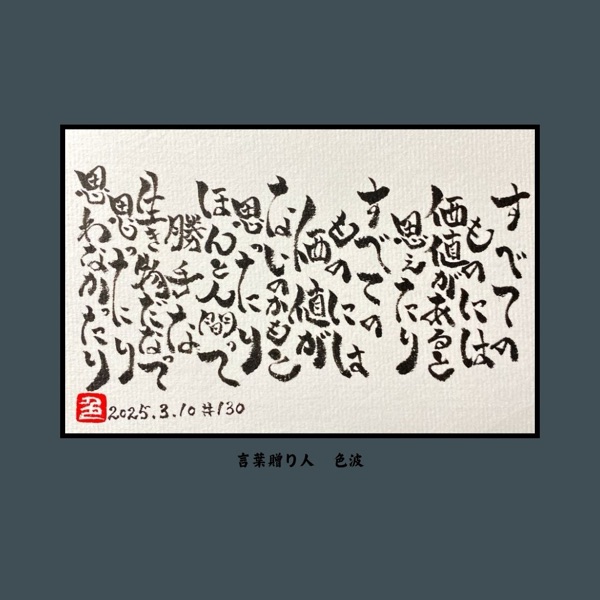 すべての
ものには
価値があると
思えたり
すべての
ものには
価値が
ないのかもと
思ったり
ほんと人間って
勝手な
生き物だなって
思ったり
思わなかったり
2025.3.10 #130
言葉贈り人 色波